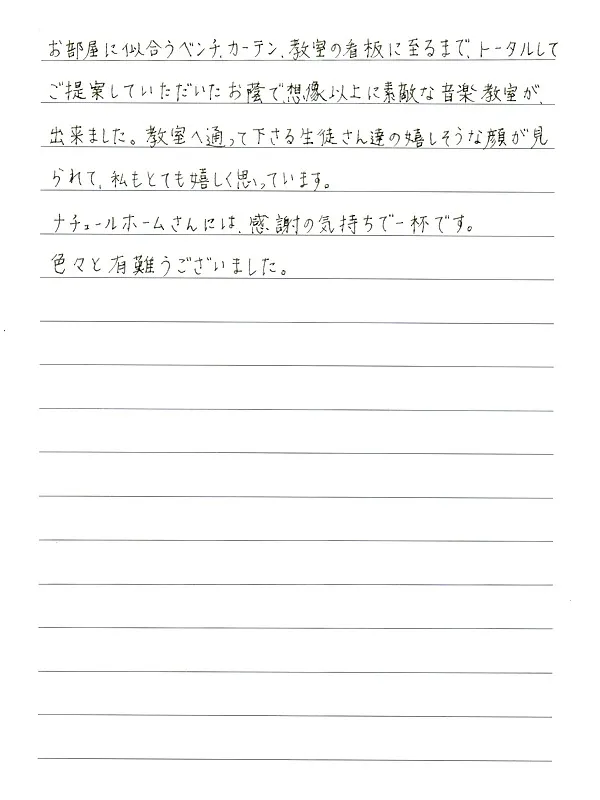 お部屋に似合うベンチ、カーテン、教室の看板に至るまで、トータルして
ご提案していただいたお蔭で、想像以上に素敵な音楽教室が、
出来ました。教室へ通って下さる生徒さん達の嬉しそうな顔が見
られて、私もとても嬉しく思っています。
ナチュールホームさんには、感謝の気持ちで一杯です。
色々と有難うございました。